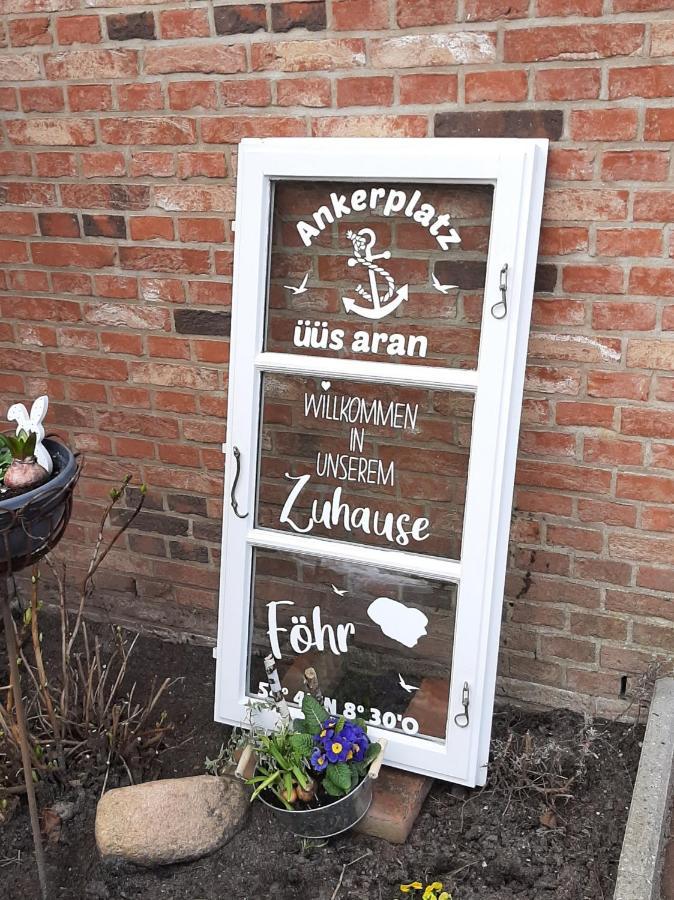 Ankerplatz
üüs aran
WILLKOMMEN
IN
UNSEREM
Zuhause
Föhr
N 8° 30'O